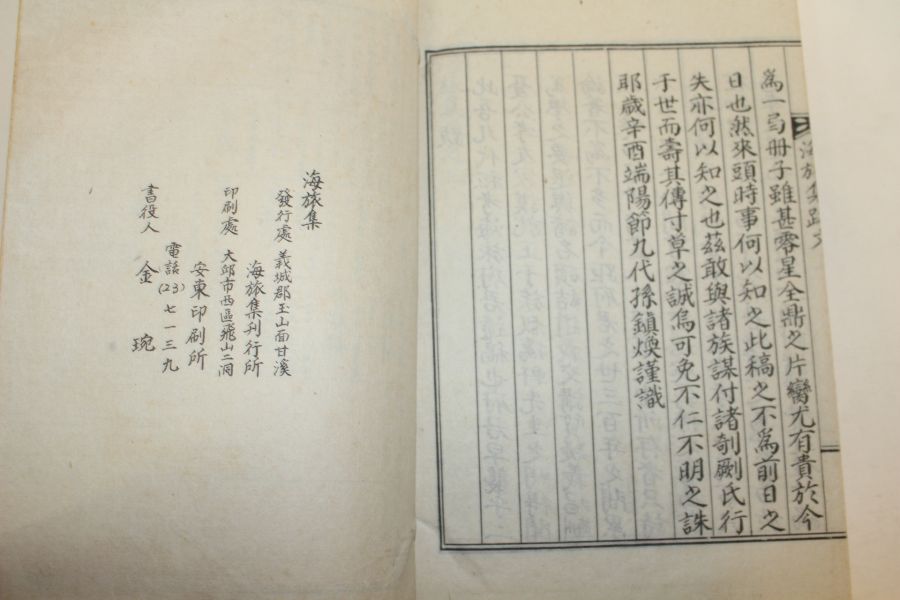 海旅集跋文
為一局册子雖甚零星全鼎之片臠尤有貴於今
日也然來頭時事何以知之此稿之不為前日之
失亦何以知之也玆敢與諸族謀付諸剞劂氏行
于世而壽其傳寸草之誠烏可免不仁不明之誅
耶歲辛酉端陽節九代孫鎭煥謹識
海旅集
發行處 義城郡玉山面甘溪
海旅集刊行所
印刷處 大邱市西區飛山二洞
安東印刷所
電話(23)七一三九
書役人 金 琬